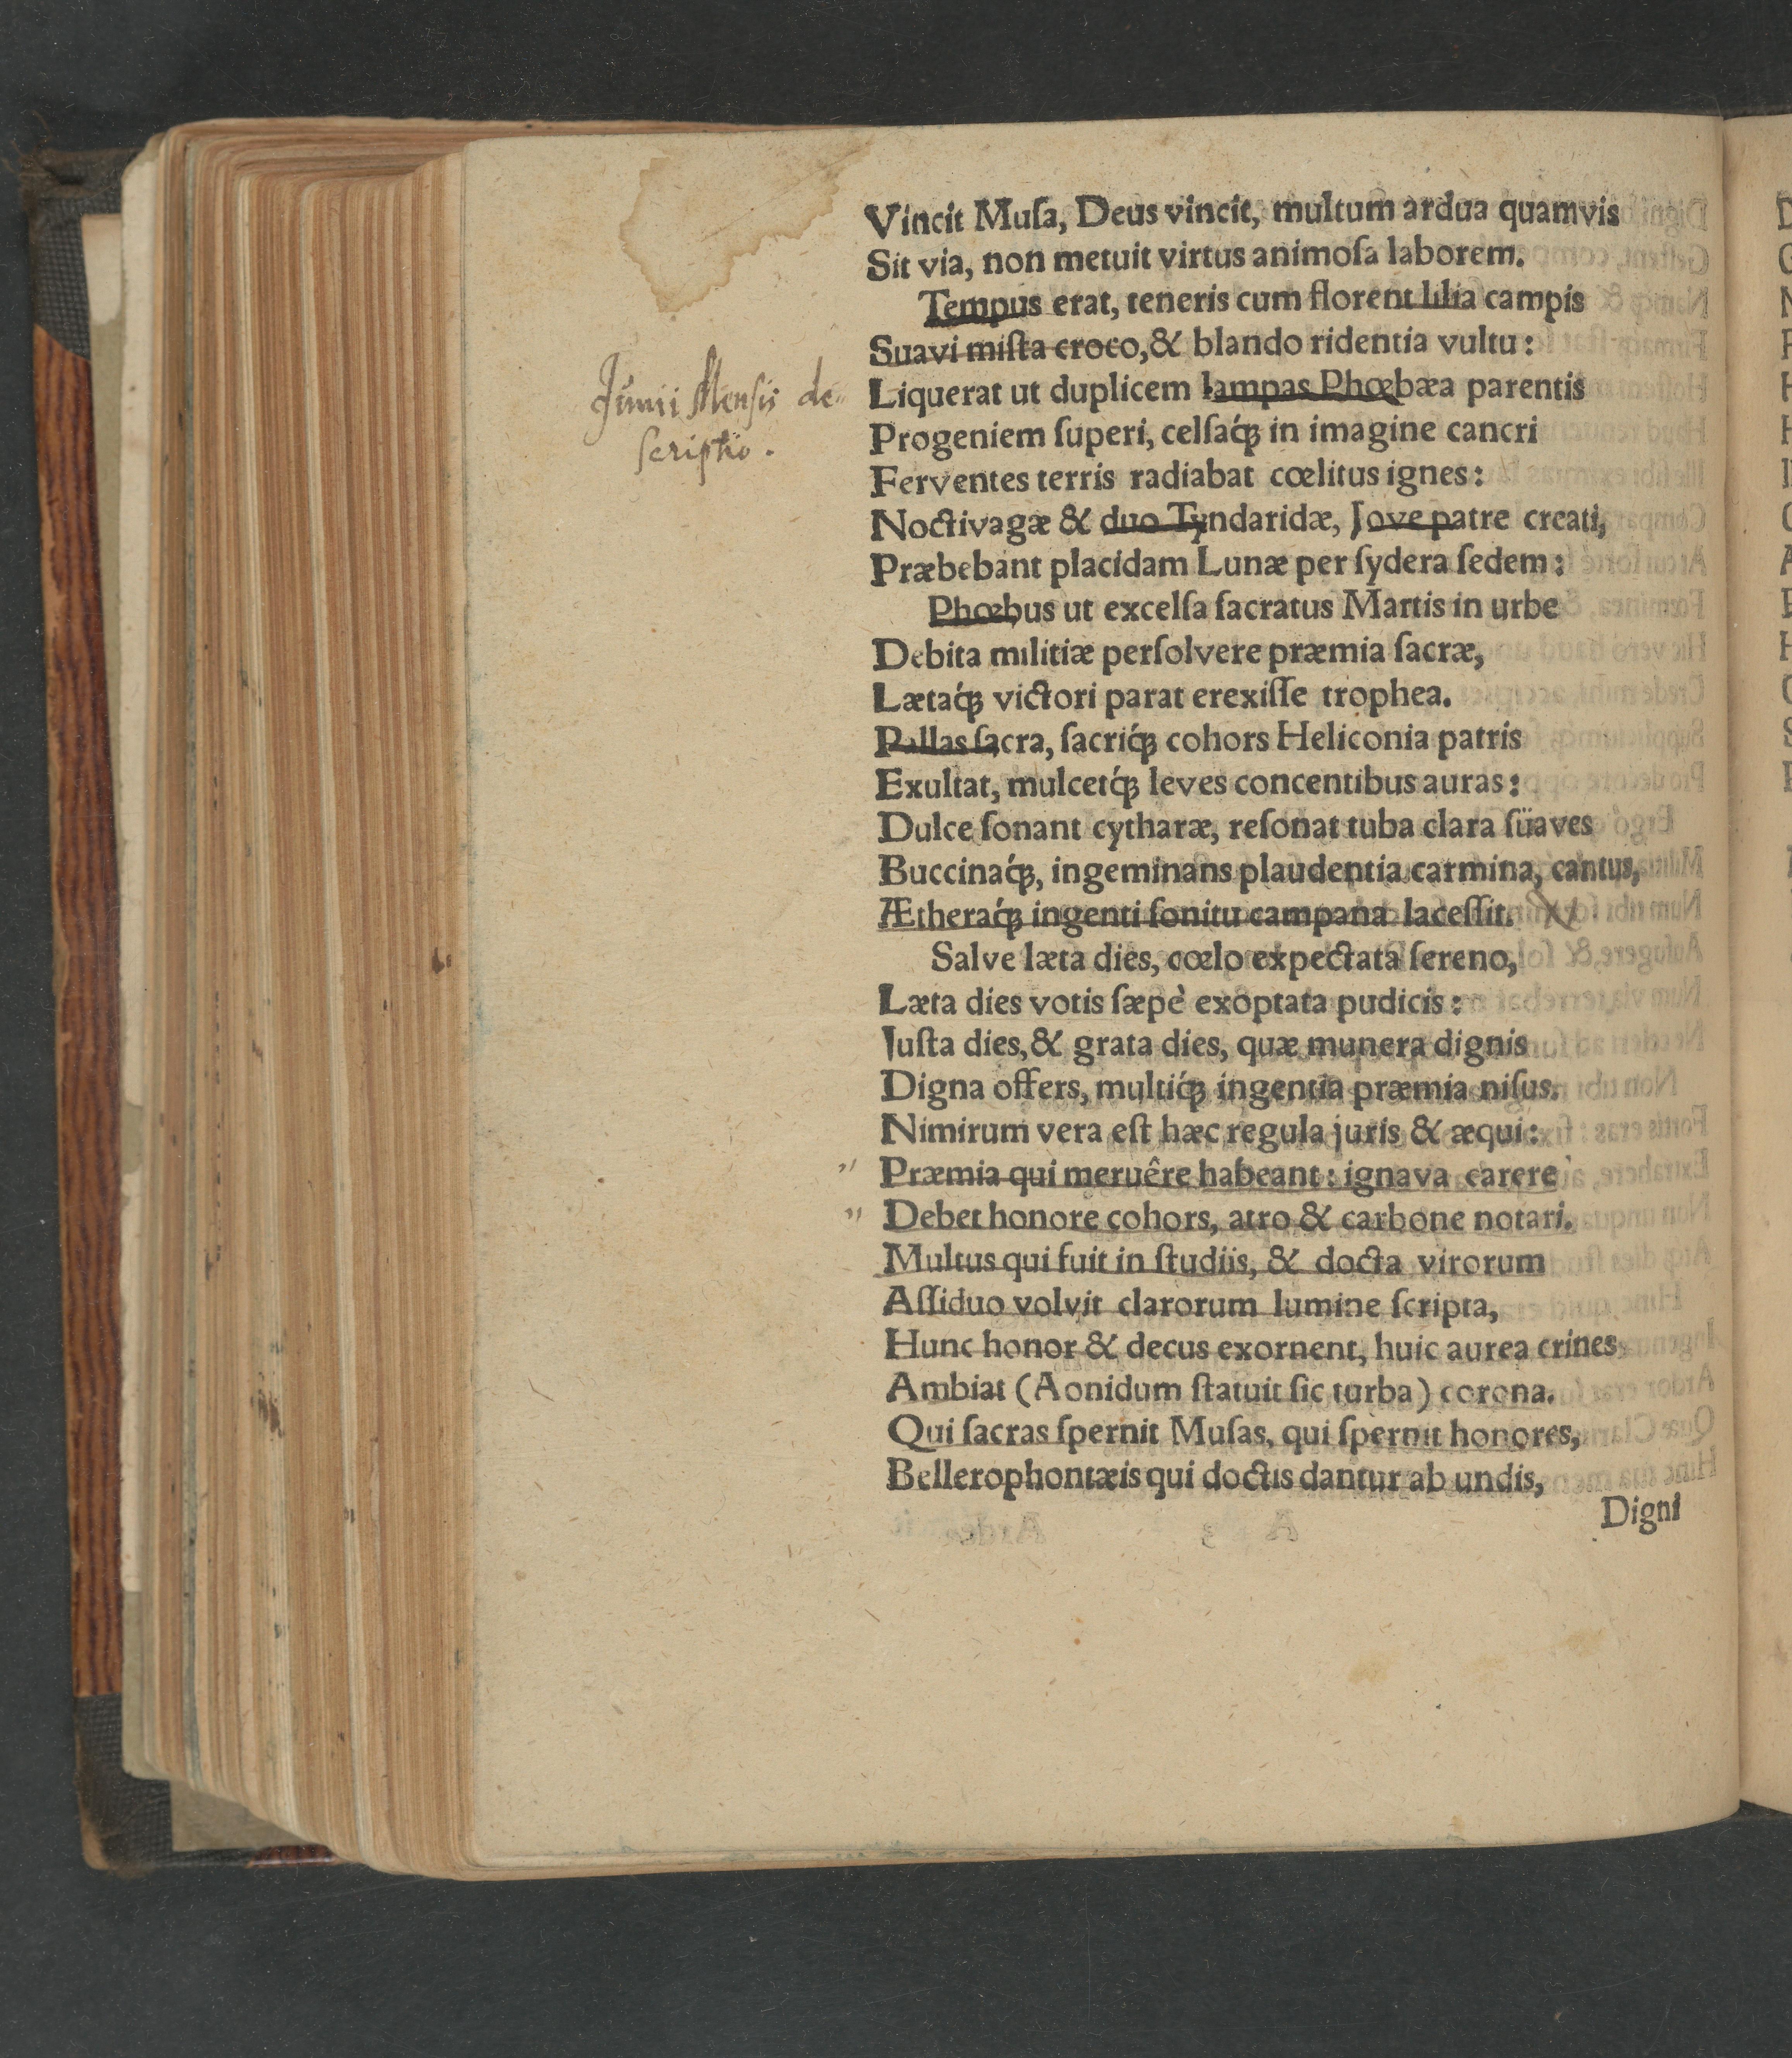 Vincit Muſa, Deus vincit, multum ardua quamvis
Sit via, non metuit virtus animoſa laborem.
Tempus erat, teneris cum florent lilia campis
Suavi miſta croco, & blando ridentia vultu:
Junii Mensis de-
scriptio.
Liquerat ut duplicem lampas Phœbæa parentis
Progeniem ſuperi, celſaq́ꝫ in imagine cancri
Ferventes terris radiabat cœlitus ignes:
Noctivagæ & duo Tyndaridæ, Jove patre creati,
Præbebant placidam Lunæ per ſydera ſedem:
Phœbus ut excelſa ſacratus Martis in urbe
Debita militiæ perſolvere præmia ſacræ,
Lætaq́ꝫ victori parat erexiſſe trophea.
Pallas ſacra, ſacriq́ꝫ cohors Heliconia patris
Exultat, mulcetq́ꝫ leves concentibus auras:
Dulce ſonant cytharæ, reſonat tuba clara ſüaves
Buccinaq́ꝫ, ingeminans plaudentia carmina, cantus,
Ætheraq́ꝫ ingenti ſonitu campana laceſſit.
Salve læta dies, cœlo expectata ſereno,
Læta dies votis ſæpè exoptata pudicis:
Juſta dies, & grata dies, quæ munera dignis
Digna offers, multiq́ꝫ ingentia præmia niſus.
Nimirum vera eſt hæc regula juris & æqui:
" Præmia qui meruêre habeant: ignava carere
" Debet honore cohors, atro & carbone notari.
Multus qui fuit in ſtudiis, & docta virorum
Aſſiduo volvit clarorum lumine ſcripta,
Hunc honor & decus exornent, huic aurea crines
Ambiat (Aonidum ſtatuit ſic turba) corona.
Qui ſacras ſpernit Muſas, qui ſpernit honores,
Bellerophontæis qui doctis dantur ab undis,
Digni